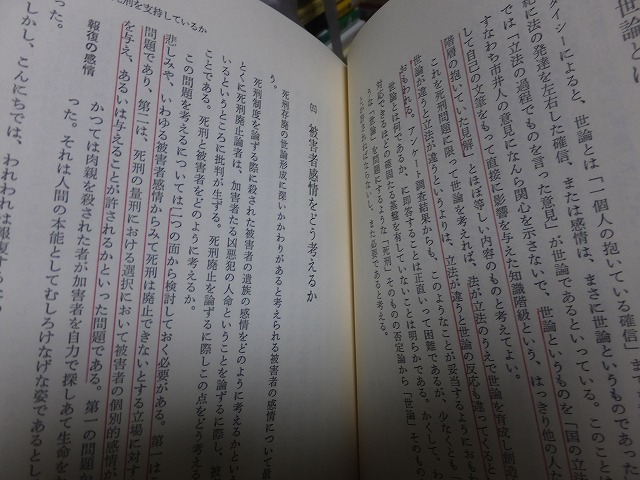 世論と
ダイシーによると、世論とは「一個人の抱いている確信」まで
に法の発達を左右した確信、または感情は、まさに世論というものであった
では「立法の過程でものを言った意見」が世論であるといっている。このことは
すなわち市井人の意見になんら関心を示さないで、世論というものを「国の立法
して自己の文筆をもって直接に影響を与えた知識階級という、はっきり他の人た
階層の抱いていた見解」とほぼ等しい内容のものと考えてよい。
これを死刑問題に限って世論を考えれば、法が立法のうえで世論を育成し
世論が違うと立法が違うというよりは、立法が違うと世論の反応も違ってくると
おもわれ、アンケート調査結果からも、このようなことが妥当するようにおも
世論とは何であるか、に即答することは正直いって困難であるが、少なくとも
対応できるほどの確固たる基盤を有していないことは明らかである。かくして、
うな「世論」を問題にするような「死刑」そのものの否定論から「世論」そのもの
ばならないし、また必要でもある。
死刑を支持しているか
四 被害者感情をどう考えるか
死刑存廃の世論形成に深いかかわりがあると考えられる被害者の感情について
う。
死刑制度を論ずる際に殺された被害者の遺族の感情をどのように考えるかという
とくに死刑廃止論者は、加害者たる凶悪犯の人命ということを論ずるに際し、被
いるというところに批判が生ずる。死刑廃止を論ずるに際しこの点をどう考える
ことである。死刑と被害者をどのように考えるか。
この問題を考えるについては二つの面から検討しておく必要がある。第一は
悲しみや、いわゆる被害者感情からみて死刑は廃止できないとする立場に対す
問題であり、第二は、死刑の量刑における選択において被害者の個別的感情が
を与え、あるいは与えることが許されるかといった問題である。第一の問題か
報復の感情
かつては肉親を殺された者が加害者を自力で探しあて生命を
った。それは人間の本能としてむしろけなげな姿であるとし
った。
しかし、こんにちでは、われわれは報復する